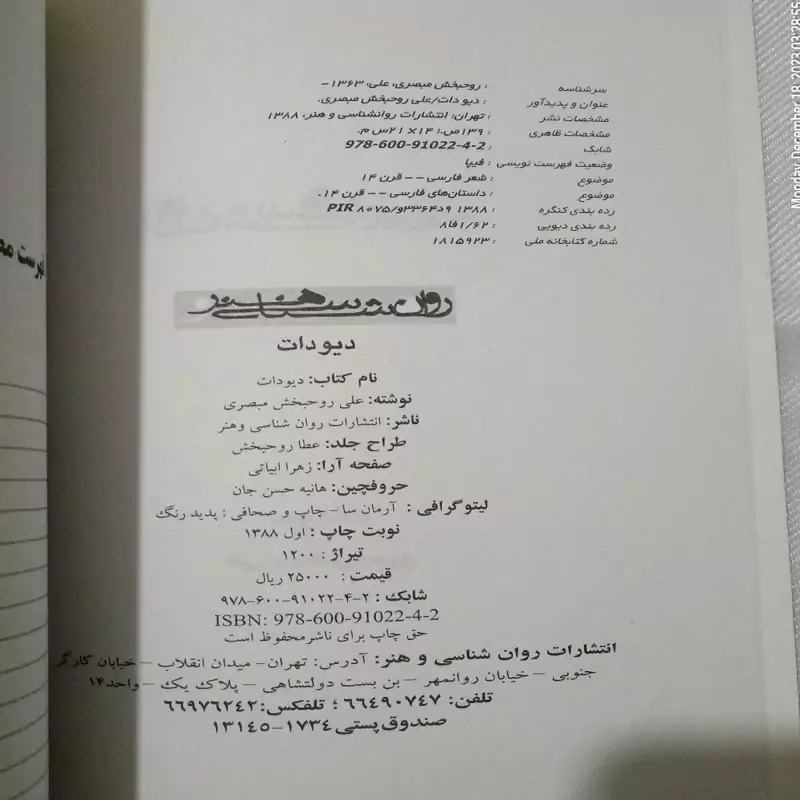 سرشناسه : روحبخش مبصری، علی، ۱۳۶۳–
عنوان و پدیدآور : دیو دات/علی روحبخش مبصری.
مشخصات نشر : تهران: انتشارات روانشناسی و هنر، ۱۳۸۸
مشخصات ظاهری : ۱۳۹ص.؛ ۱۴×۲۱س م.
شابک : 978-600-91022-4-2
وضعیت فهرست نویسی : فیپا
موضوع : شعر فارسی –– قرن ۱۴
موضوع : داستان‌های فارسی –– قرن ۱۴.
رده بندی کنگره : ۱۳۸۸ ۹د۳۳۶۴و/PIR ۸۰۷۵
رده بندی دیویی : ۱/۶۲فا۸
شماره کتابخانه ملی : ۱۸۱۵۹۲۳
روان‌شناسی هنر
دیودات
نام کتاب: دیودات
نوشته: علی روحبخش مبصری
ناشر: انتشارات روان شناسی وهنر
طراح جلد: عطا روحبخش
صفحه آرا: زهرا ابیاتی
حروفچین: هانیه حسن جان
لیتوگرافی : آرمان سا- چاپ و صحافی : پدید رنگ
نوبت چاپ : اول ۱۳۸۸
تیراژ : ۱۲۰۰
قیمت : ۲۵۰۰۰ ریال
شابک : ۲-۴-۹۱۰۲۲-۶۰۰-۹۷۸
ISBN: 978-600-91022-4-2
حق چاپ برای ناشرمحفوظ است
انتشارات روان شناسی و هنر: آدرس: تهران- میدان انقلاب – خیابان کارگر
جنوبی – خیابان روانمهر – بن بست دولتشاهی – پلاک یک – واحد۱۴
تلفن: ۶۶۴۹۰۷۴۷ ؛ تلفکس: ۶۶۹۷۶۲۴۲
صندوق پستی ۱۷۳۴-۱۳۱۴۵
فهرست
Monday, December 18, 2023 03:28:55